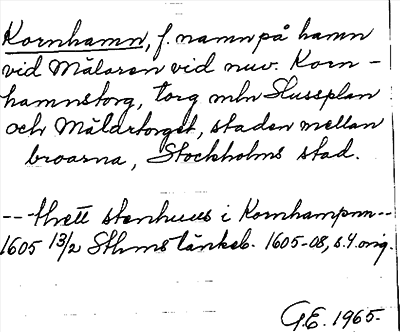 Kornhamn, f. namn på hamn
vid Mälaren vid nuv. Korn-
hamnstorg, torg mln Slussplan
och Mälartorget, staden mellan
broarna, Stockholms stad.
--- thrett stenhuus i Kornhampnn --
1605 13/2 Sthms tänkeb. 1605-08, s. 4 orig.
G.E. 1965.